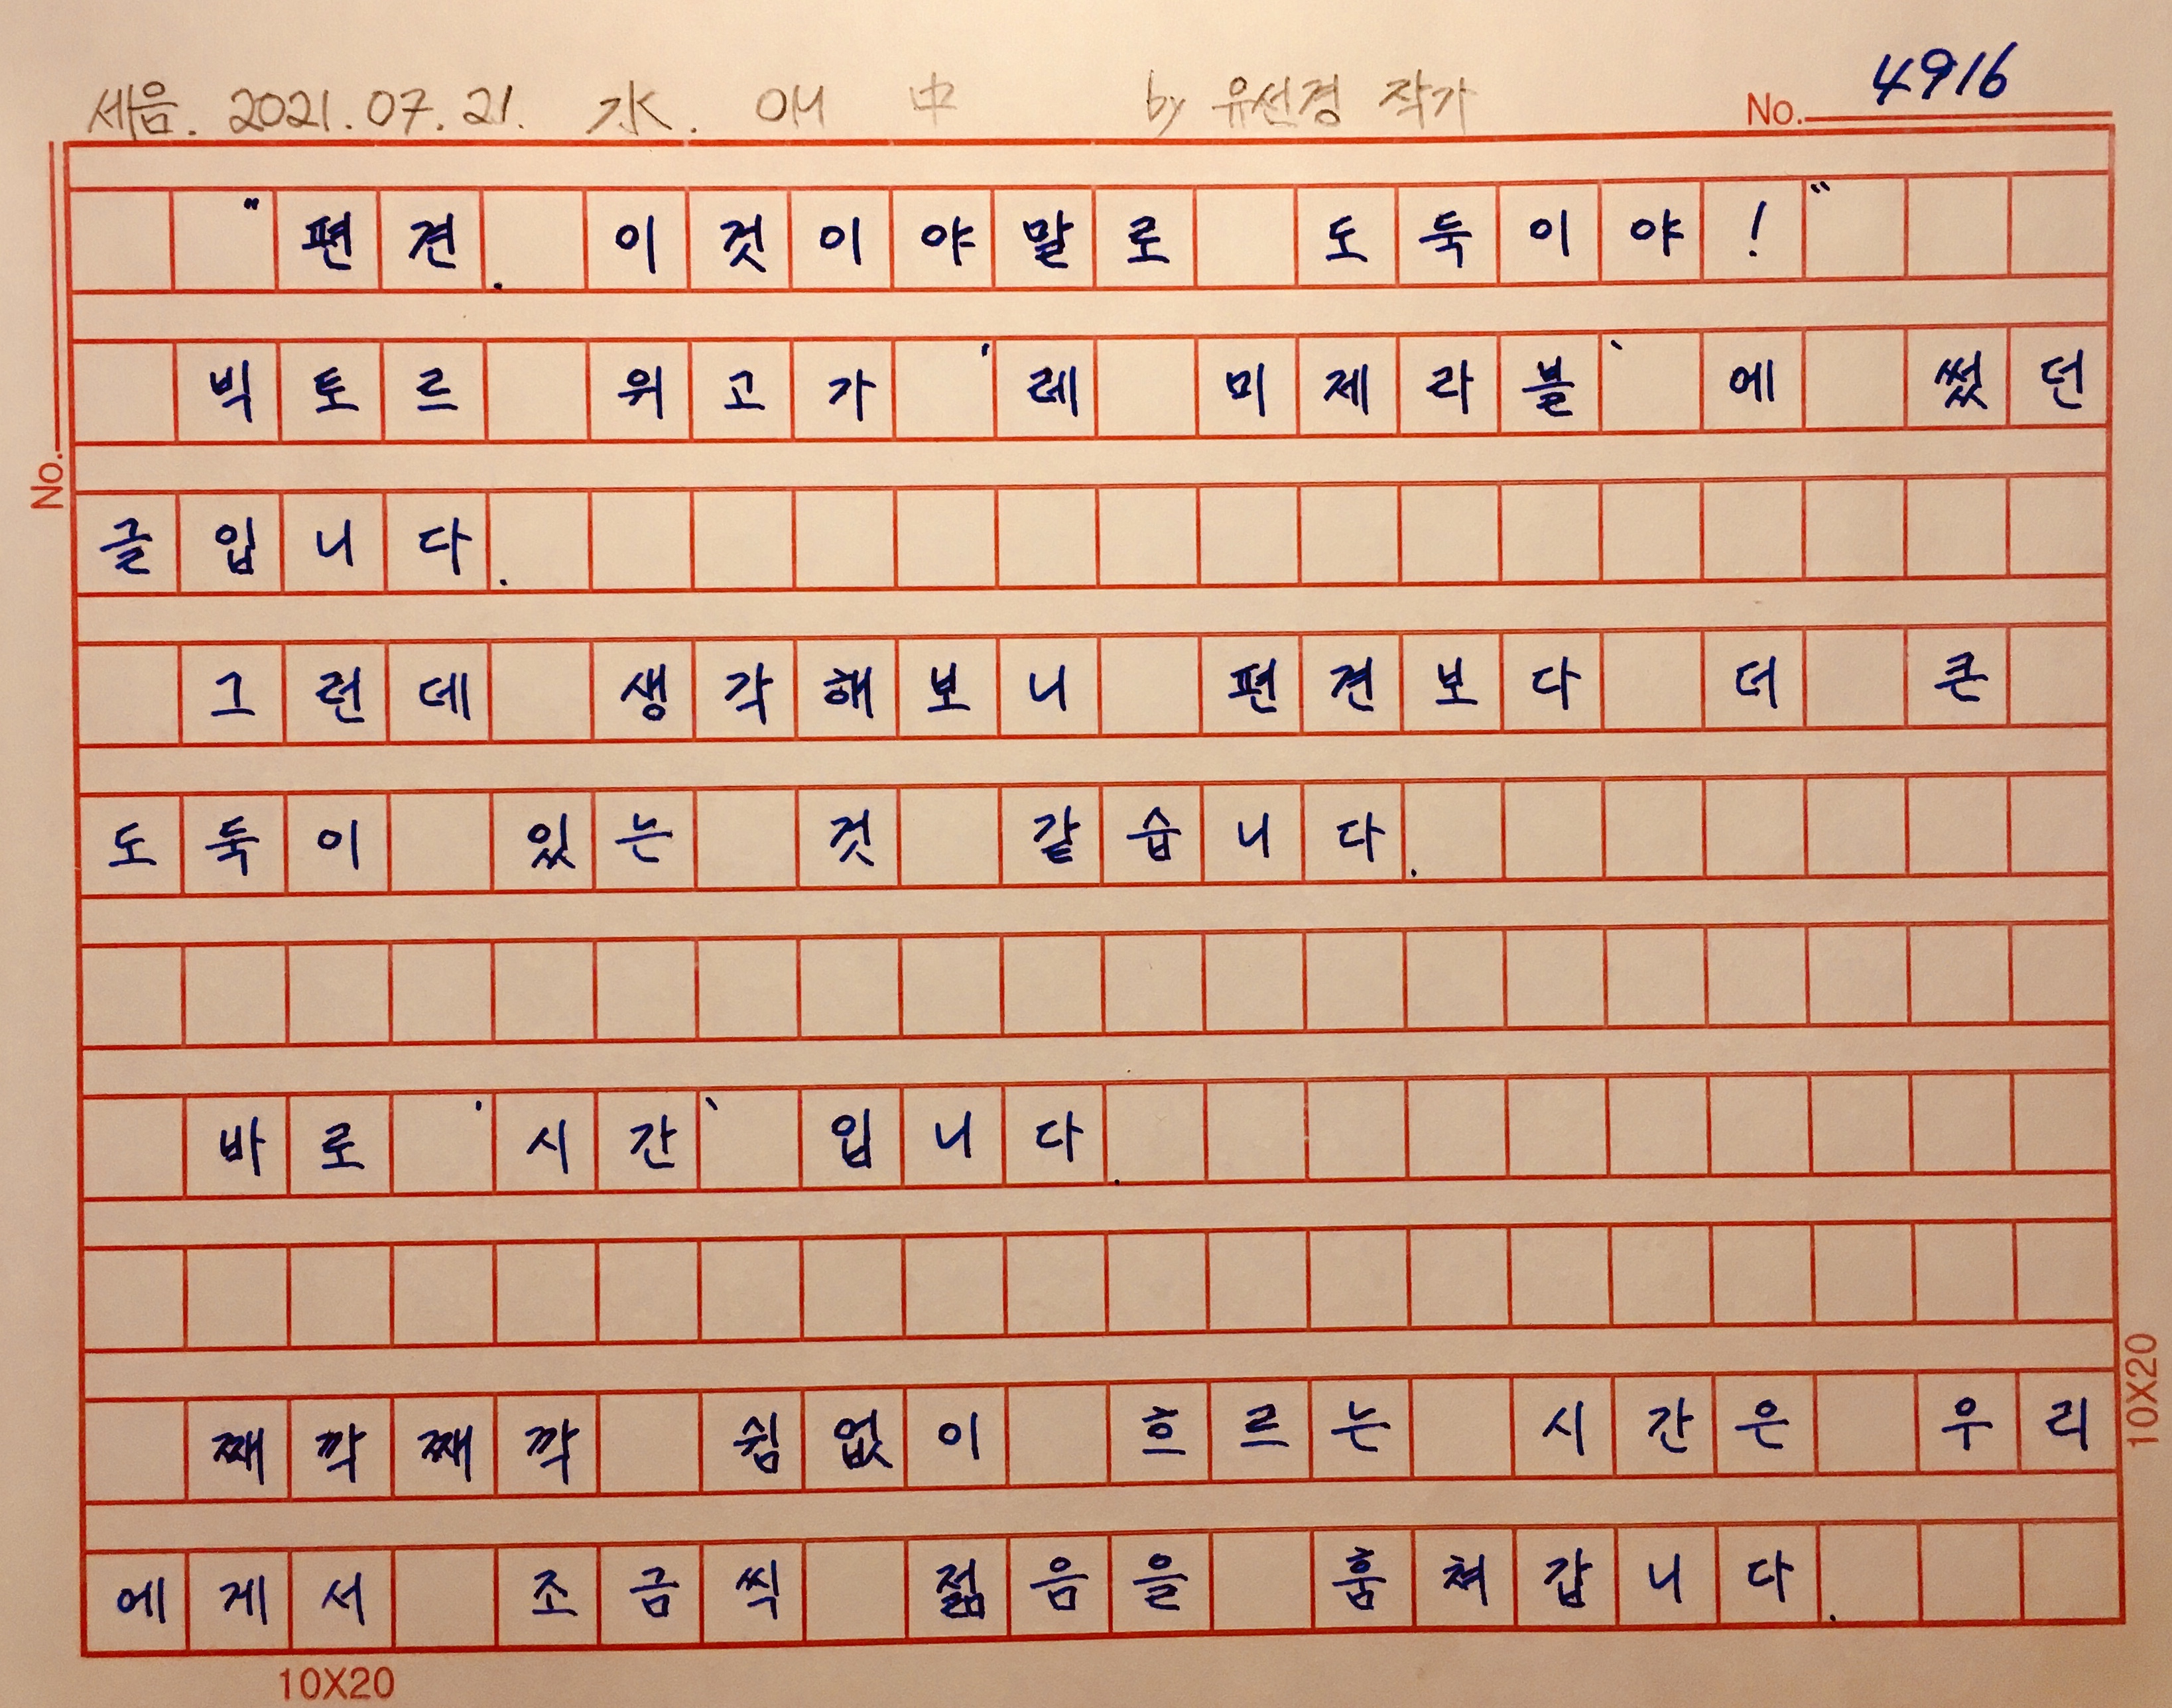 세음. 2021.07.21. 水. OM 中 by 유선경 작가
No. 4916
"편견. 이것이야말로 도둑이야!"
빅토르 위고가 '레 미제라블'에 썼던
No.
글입니다.
그런데 생각해보니 편견보다 더 큰
도둑이 있는 것 같습니다.
바로 '시간'입니다.
째깍째깍 쉼없이 흐르는 시간은 우리
10X20
에게서 조금씩 젊음을 훔쳐갑니다.
10X20